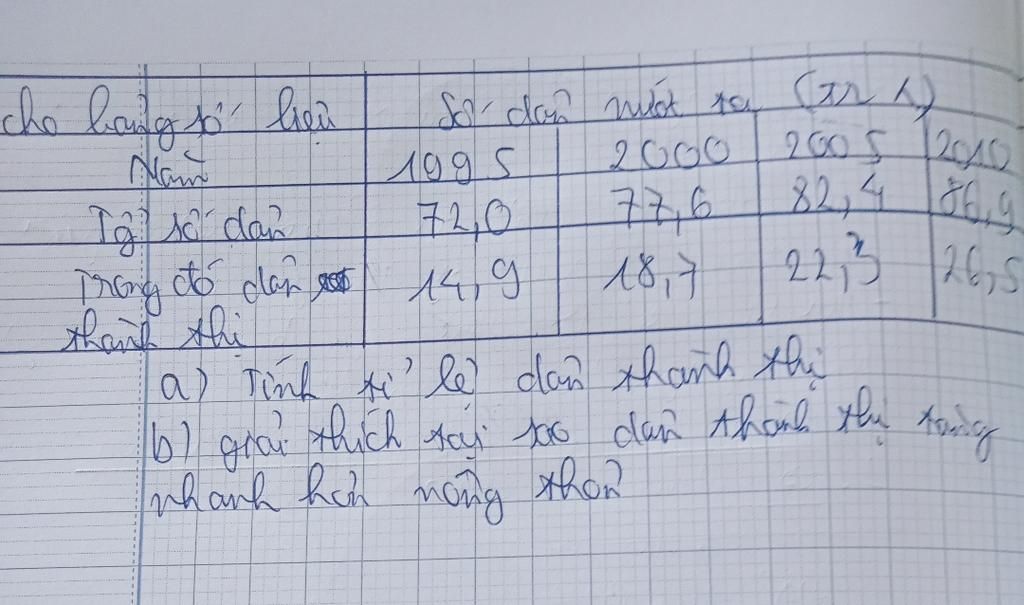 cho bảng số liệu Số dân nước ta (Tr N)
Năm 1995 2000 2005 2010
Tg số dân 72,0 77,6 82,4 86,9
Trong đó dân 14,9 18,7 22,3 26,5
thành thị
a) Tính tỉ lệ dân thành thị
b) giải thích tại sao dân thành thị tăng
nhanh hơn nông thôn